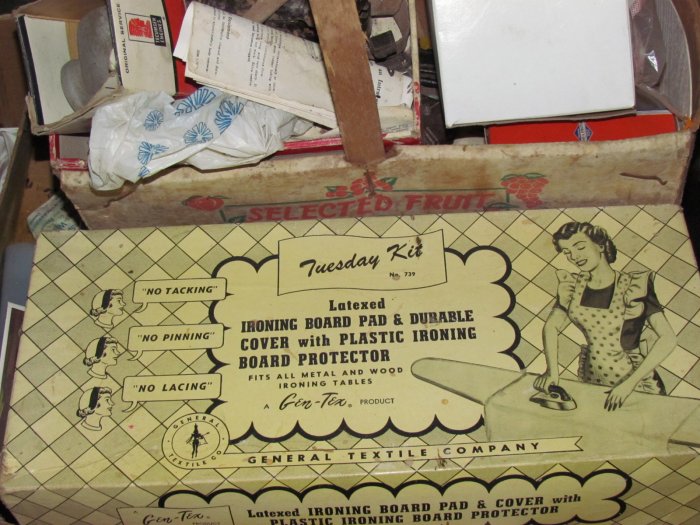 ORIGINAL SERVICE
SELECTED FRUIT
Tuesday Kit
No. 739
Latexed
IRONING BOARD PAD & DURABLE
COVER with PLASTIC IRONING
BOARD PROTECTOR
FITS ALL METAL AND WOOD
IRONING TABLES
A Gen-Tex PRODUCT
"NO TACKING"
"NO PINNING"
"NO LACING"
GENERAL
TEXTILE CO.
GENERAL TEXTILE COMPANY
Gen-Tex
Latexed IRONING BOARD PAD & COVER with
PLASTIC IRONING BOARD PROTECTOR